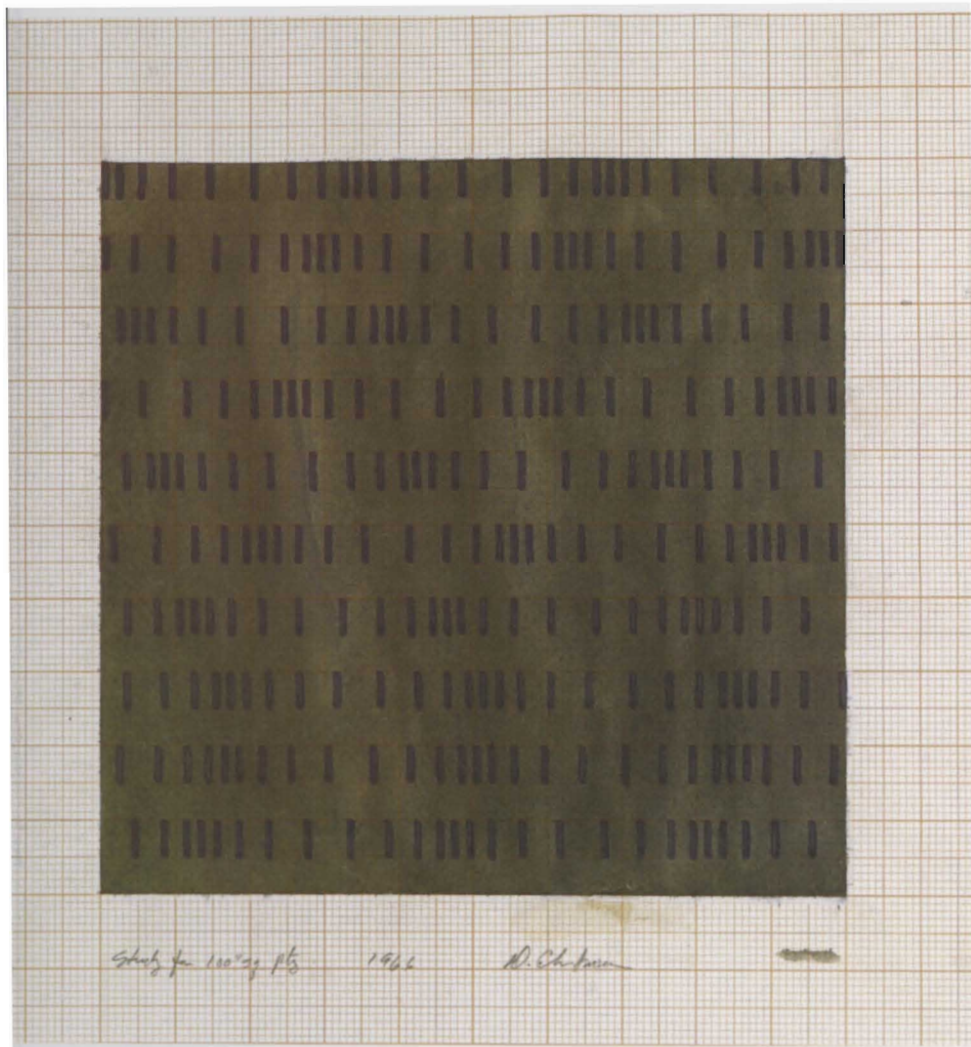 Study for 100" sq ptg 1966